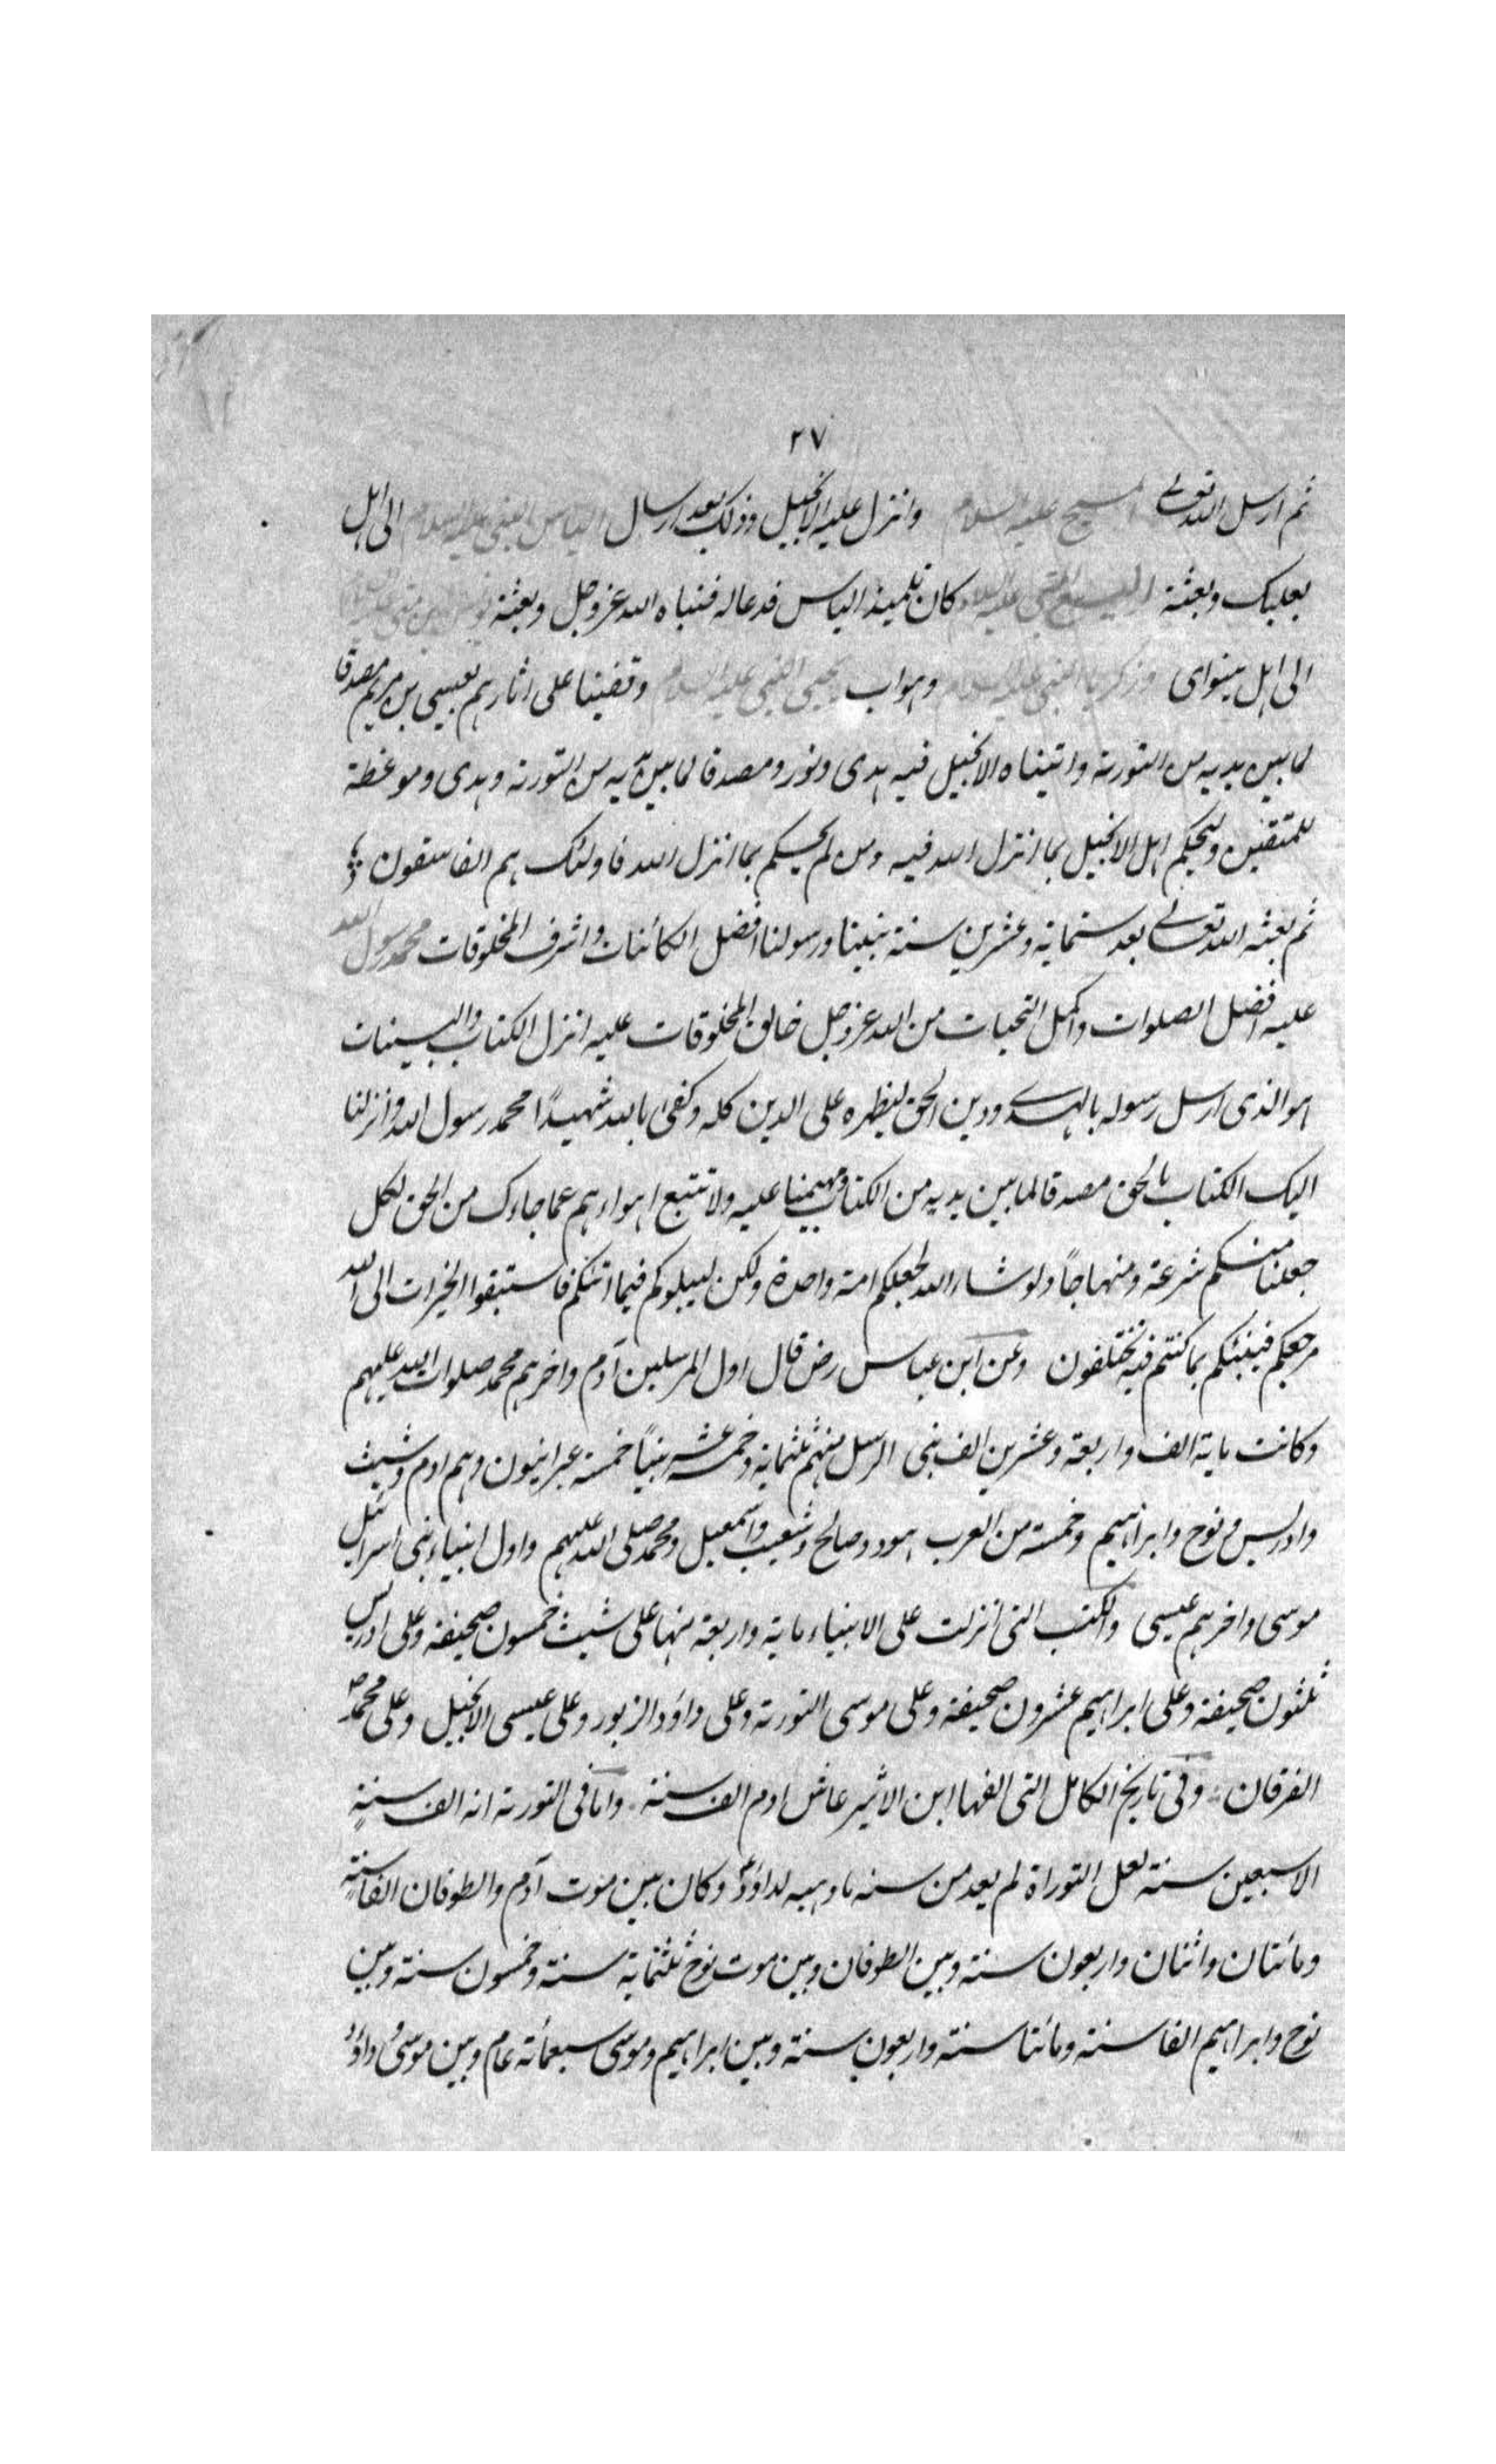 ٢٧
ثم ارسل الله تعالى المسيح عليه السلام وانزل عليه الانجيل وذلك بعد ارسال الياس النبي عليه السلام الى اهل
بعلبك وبعثة اليسع النبي عليه السلام كان تلميذ الياس فدعا له فنباه الله عز وجل وبعثة يونس بن متى عليه السلام
الى اهل نينواى وزكريا النبي عليه السلام وهو اب يحيى النبي عليه السلام وقفينا على اثارهم بعيسى بن مريم مصدقا
لما بين يديه من التورته واتيناه الانجيل فيه هدى ونور ومصدقا لما بين يديه من التورته وهدى وموعظة
للمتقين وليحكم اهل الانجيل بما انزل الله فيه ومن لم يحكم بما انزل الله فاولئك هم الفاسقون
ثم بعثه الله تعالى بعد ستماية وعشرين سنة نبينا ورسولنا افضل الكائنات واشرف المخلوقات محمد رسول الله
عليه افضل الصلوات واكمل التحيات من الله عز وجل خالق المخلوقات عليه انزل الكتاب والبينات
هو الذى ارسل رسوله بالهدى ودين الحق ليظهره على الدين كله وكفى بالله شهيدًا محمد رسول الله وانزلنا
اليك الكتاب بالحق مصدقا لما بين يديه من الكتاب ومهيمنا عليه ولا تتبع اهواءهم عما جاءك من الحق لكل
جعلنا منكم شرعة ومنهاجاً ولو شاء الله لجعلكم امة واحدة ولكن ليبلوكم فيما اتىكم فاستبقوا الخيرات الى الله
مرجعكم فينبئكم بما كنتم فيه تختلفون وعن ابن عباس رض قال اول المرسلين آدم واخرهم محمد صلوات الله عليهم
وكانت ماية الف واربعة وعشرين الف نبى الرسل منهم ثلثماية وخمسة عشر نبياً خمسة عبرانيون وهم ادم وشيث
وادريس ونوح وابراهيم وخمسة من العرب هود وصالح وشعيب واسمعيل ومحمد صلى الله عليهم واول انبياء بنى اسرائيل
موسى واخرهم عيسى والكتب التى انزلت على الانبياء ماية واربعة منها على شيث خمسون صحيفة وعلى ادريس
ثلثون صحيفة وعلى ابراهيم عشرون صحيفة وعلى موسى التورته وعلى داؤد الزبور وعلى عيسى الانجيل وعلى محمد ص
الفرقان وفى تاريخ الكامل التى الفها ابن الاثير عاش ادم الف سنة واما فى التورته انه الف سنةٍ
الا سبعين سنة لعل التوراة لم يعد من سنه ما وهبه لداؤدؑ وكان بين موت آدم والطوفان الفا سنةٍ
ومائتان واثنان واربعون سنة وبين الطوفان وبين موت نوح ثلثماية سنة وخمسون سنة وبين
نوح وابراهيم الفا سنة ومائتا سنة واربعون سنة وبين ابراهيم وموسى سبعمائة عام وبين موسى وداؤد